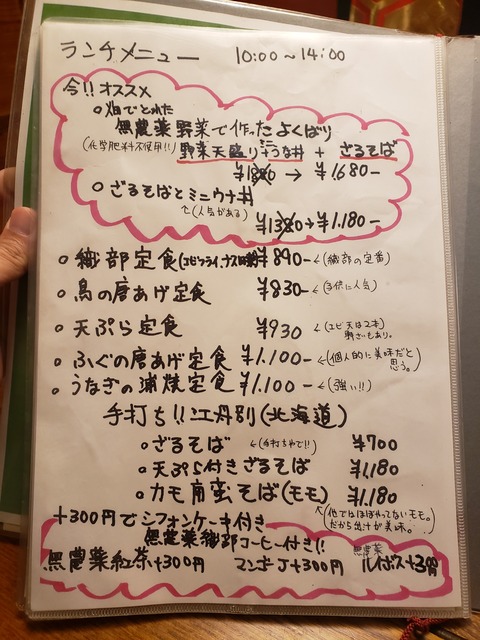 ランチメニュー 10:00～14:00
今!! オススメ
○畑でとれた
無農薬野菜で作ったよくばり
(化学肥料不使用!!) 野菜天盛り うな丼 + ざるそば
→ ¥1680-
○ざるそばとミニウナ丼
↑(人気がある)
¥1380→¥1.180-
○織部定食 ¥890-←(織部の定番)
○鳥の唐あげ定食 ¥830-←(子供に人気)
○天ぷら定食 ¥930 ←(エビ天は2本) 野さいもあり。
○ふぐの唐あげ定食 ¥1.100-←(個人的に美味だと思う。)
○うなぎの蒲焼定食 ¥1.100-←(強い!!)
手打ち!!江丹別(北海道)
○ざるそば ←(手打ちやで!!) ¥700
○天ぷら付きざるそば ¥1,180
○カモ南蛮そば(モモ) ¥1,180
↑(他ではほぼやってないモモ。
だから出汁が美味。)
+300円でシフォンケーキ付き
無農薬織部コーヒー付き!!
無農薬
無農薬紅茶+300円 +300円 ルイボス+3円